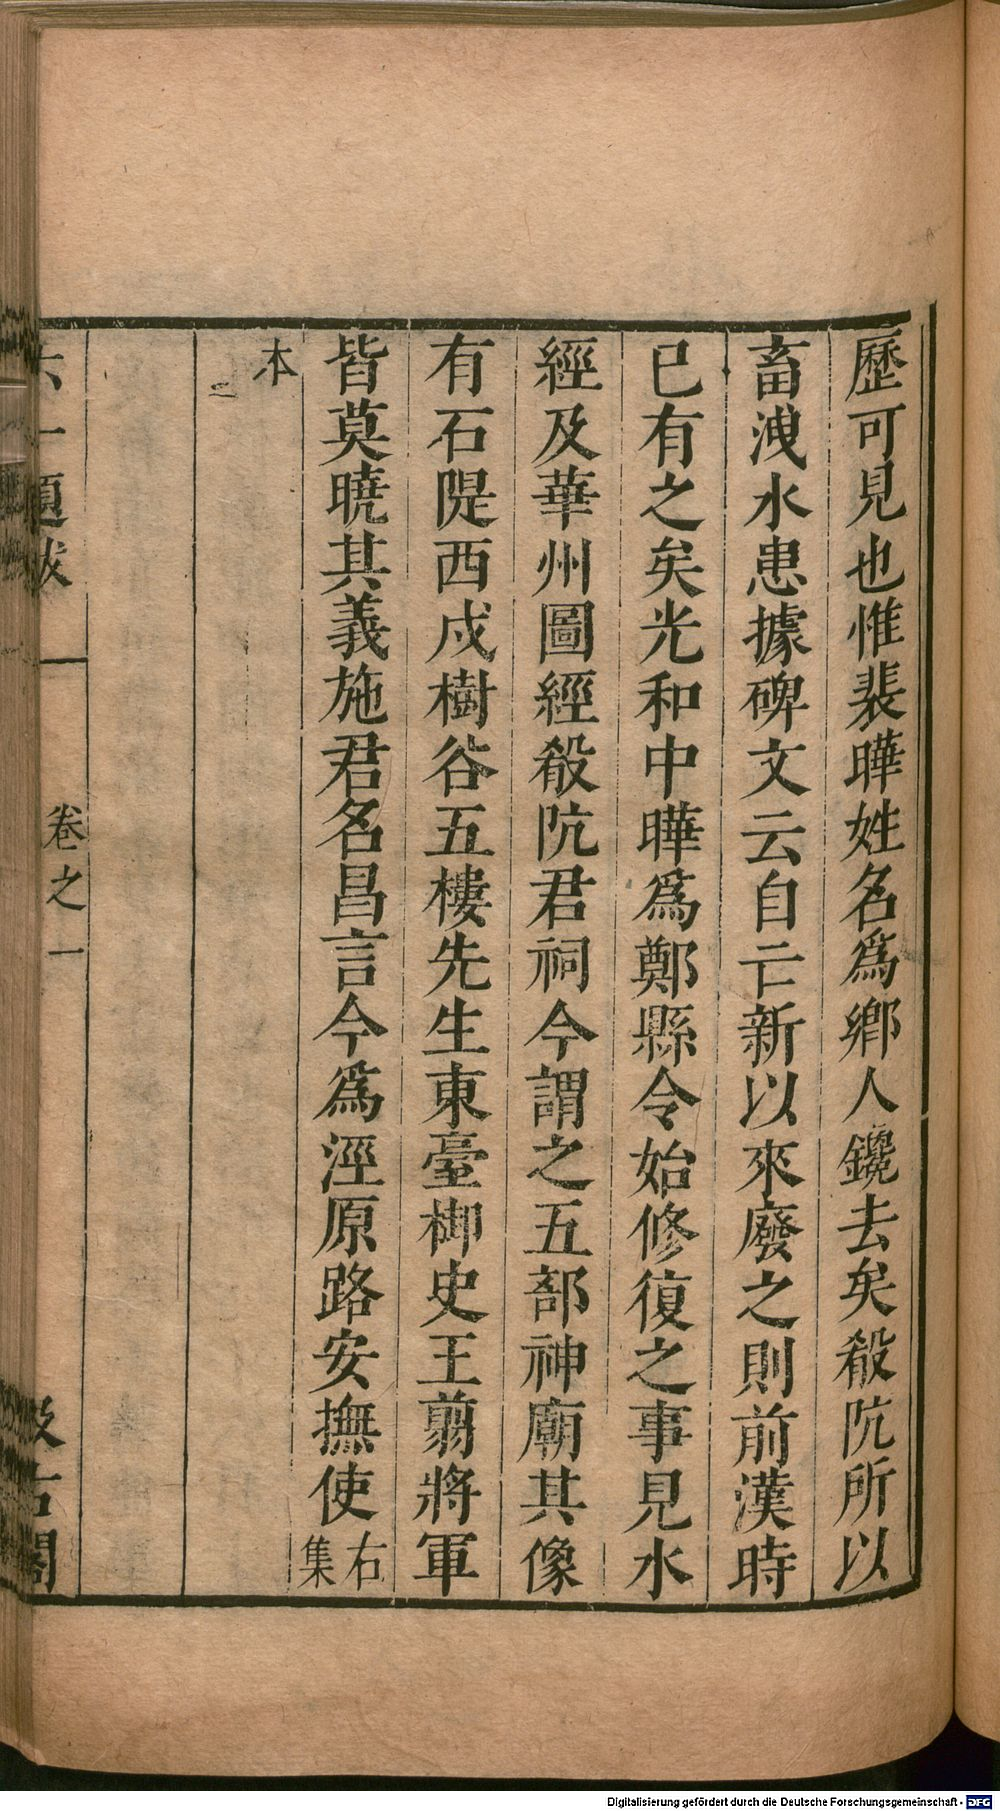 歷可見也惟裴曄姓名爲鄉人鑱去矣殽阬所以
畜洩水患據碑文云自亡新以來廢之則前漢時
已有之矣光和中曄爲鄭縣令始修復之事見水
經及華州圖經殽阬君祠今謂之五部神廟其像
有石隄西戍樹谷五樓先生東臺御史王翦將軍
皆莫曉其義施君名昌言今爲涇原路安撫使右集
本
六一題跋
卷之一
汲古閣
Digitalisierung gefördert durch die Deutsche Forschungsgemeinschaft - DFG